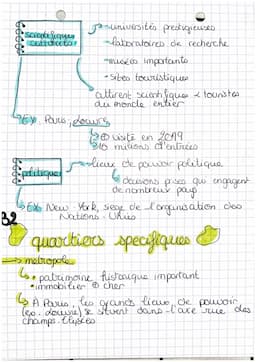 → universités prestigieuses
scientifiques
→ laboratoires de recherche
→ musées importants
→ sites touristiques
attirent scientifiques & touristes
du monde entier
Ex. Paris, Louvre
visité en 2019
10 millions d'entrées
politiques
→ lieux de pouvoir politique
↳ décisions prises qui engagent
de nombreux pays
↳ Ex: New-York, siège de l'organisation des
Nations-Unies
B2
quartiers spécifiques
→ métropole
↳ • patrimoine historique important
• immobilier ⊕ cher
↳ À Paris, les grands lieux de pouvoir
(ex. Louvre) se situent dans l'axe rue des
champs-Elysées